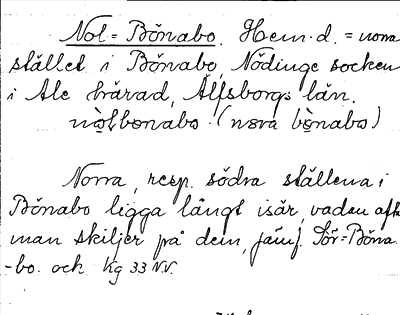 Nol-Bönabo. Hem.d. = norra
stället i Bönabo, Nödinge socken
i Ale härad, Älfsborgs län.
nolbonabo (nora bonabo)
Norra, resp. södra ställena i
Bönabo ligga långt isär, vadan ofta
man skiljer på dem, jämf. Sör-Böna
-bo. och Kg 33 NV.